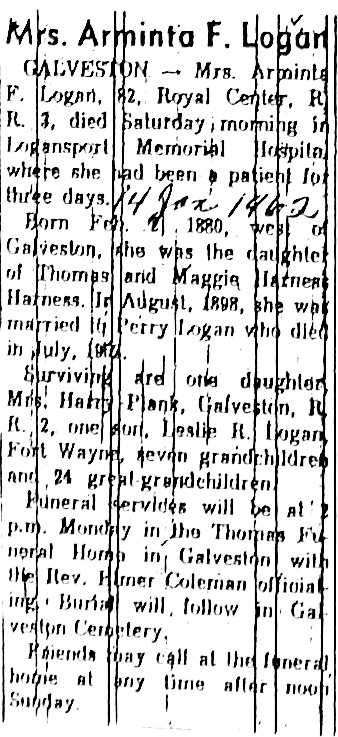 Mrs. Arminta F. Logan
GALVESTON — Mrs. Arminta
F. Logan, 82, Royal Center, R.
R. 3, died Saturday morning in
Logansport Memorial Hospital
where she had been a patient for
three days. 14 1962
Born Feb. 1880, west of
Galveston, she was the daughter
of Thomas and Maggie Harness
Harness. In August, 1898, she was
married to Perry Logan who died
in July,
Surviving are one daughter,
Mrs. Harry Plank, Galveston, R.
R. 2, one son, Leslie R. Logan,
Fort Wayne, seven grandchildren
and 24 great-grandchildren.
Funeral services will be at 2
p.m. Monday in the Thomas Fu-
neral Home in Galveston with
the Rev. Elmer Coleman officiat-
ing. Burial will follow in Gal-
veston Cemetery.
Friends may call at the funeral
home at any time after noon
Sunday.